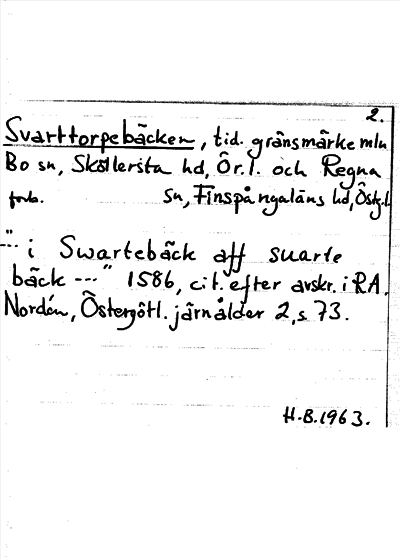 2.
Svarttorpebäcken, tid. gränsmärke mln
Bo sn, Sköllersta hd, Ör.l. och Regna
forts. sn, Finspångaläns hd, Östg.l.
"-- i Swartebäck aff suarte
bäck ---" 1586, cit. efter avskr. i RA.
Nordén, Östergötl. järnålder 2, s. 73.
H.B. 1963.